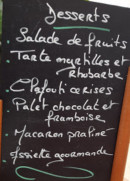 Desserts
Salade de fruits
Tarte myrtilles et
Rhubarbe
Clafouti cerises
Palet chocolat et
framboise
Macaron praliné
Assiette gourmande